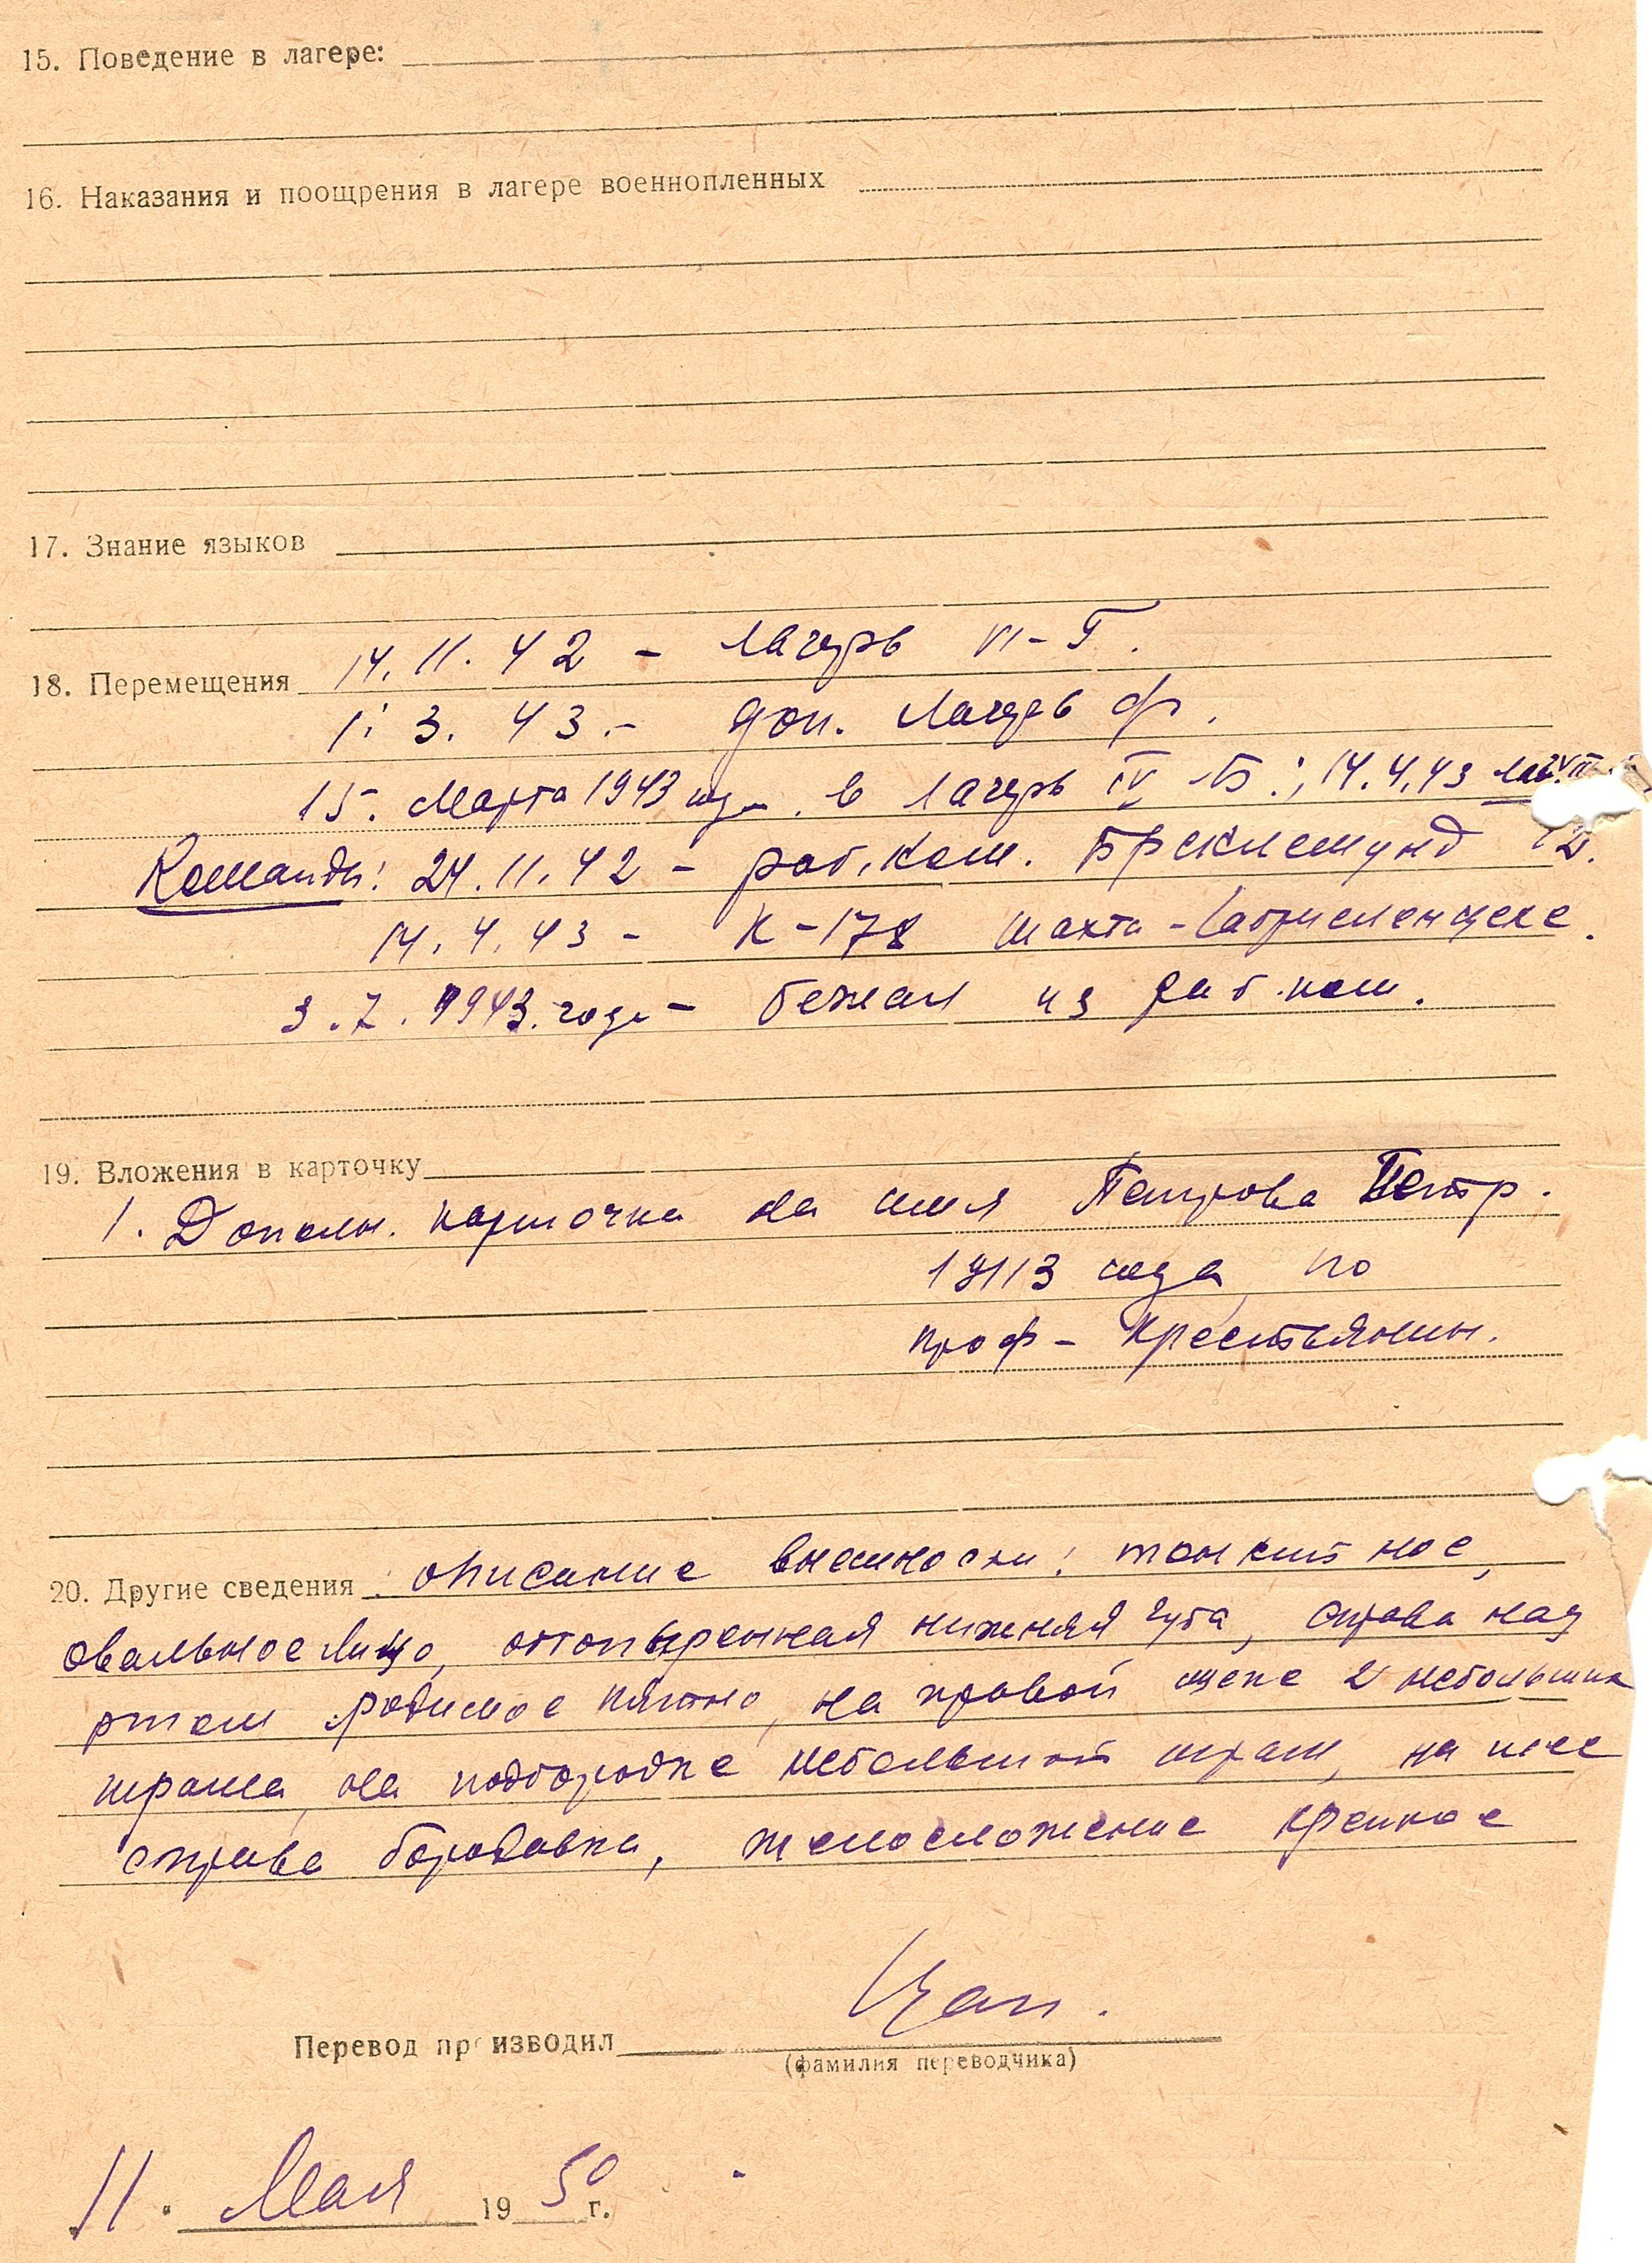 15. Поведение в лагере:
16. Наказания и поощрения в лагере военнопленных
17. Знание языков
18. Перемещения 14. 11. 42 - лагерь VI-Г.
1. 3. 43. - доп. лагерь Ф.
15. Марта 1943 года. в лагерь IV Б.; 14.4.43
Команды: 24.11.42 - раб. ком.
14. 4. 43 - К-178 шахта -
3.7.1943. года - бежал из раб. ком.
19. Вложения в карточку
1. Дополн. карточка на имя Петрова Петр.
1913 года по
проф - крестьянин.
20. Другие сведения: описание внешности:
овальное лицо, оттопыренная нижняя губа, справа над
ртом родимое пятно, на правой щеке 2 небольших
шрама, на подбородке небольшой шрам, на шее
справа бородавка, телосложение крепкое
Перевод производил
(фамилия переводчика)
11. Мая 1950 г.